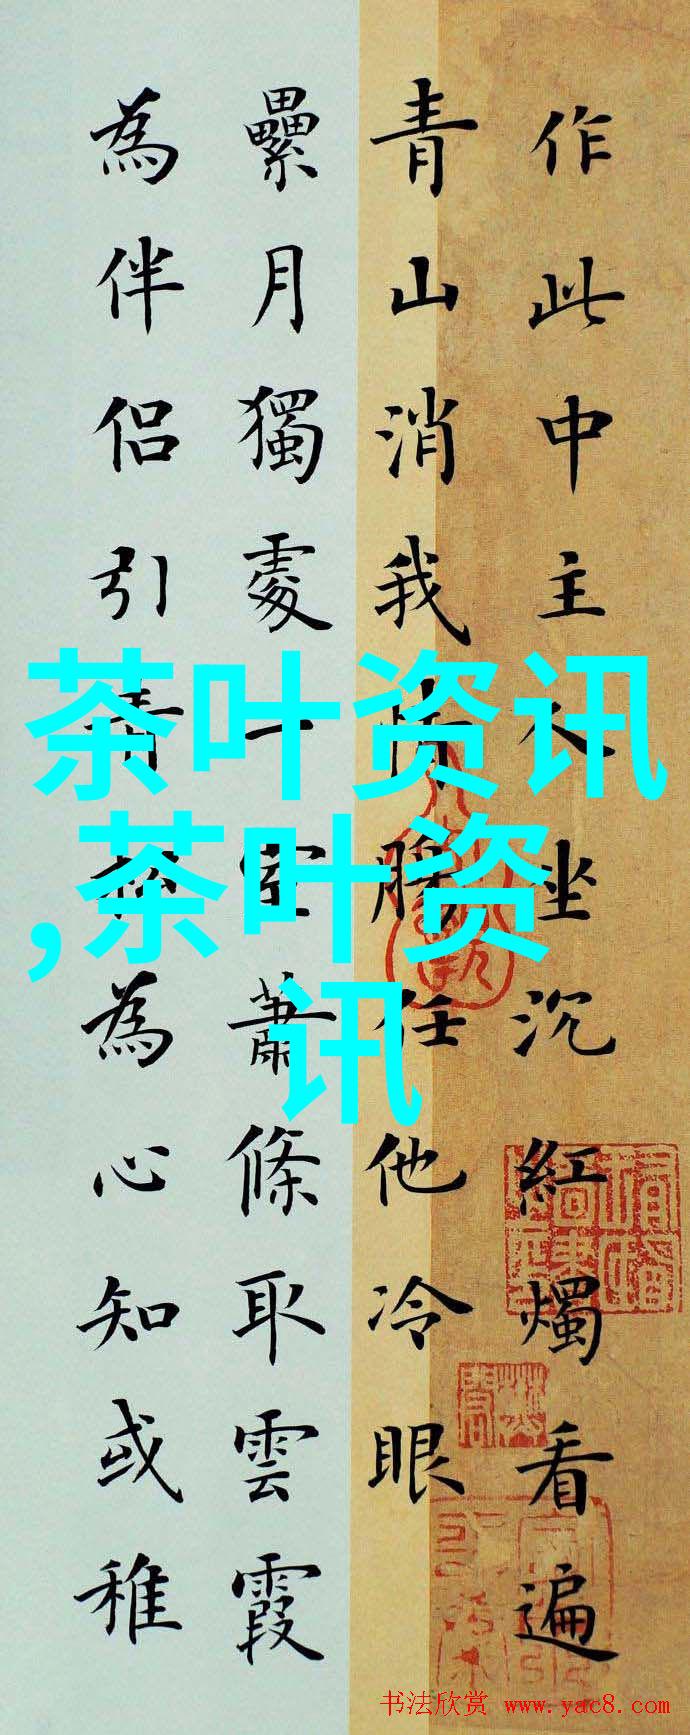 作此中主人坐沉紅燭看遍
青山消我情腸任他冷眼
纍月獨處一室蕭條取雲霞
為伴侶引青松為心知或稚
茶叶资讯
,茶叶资
讯
书法欣赏 www.yac8.com